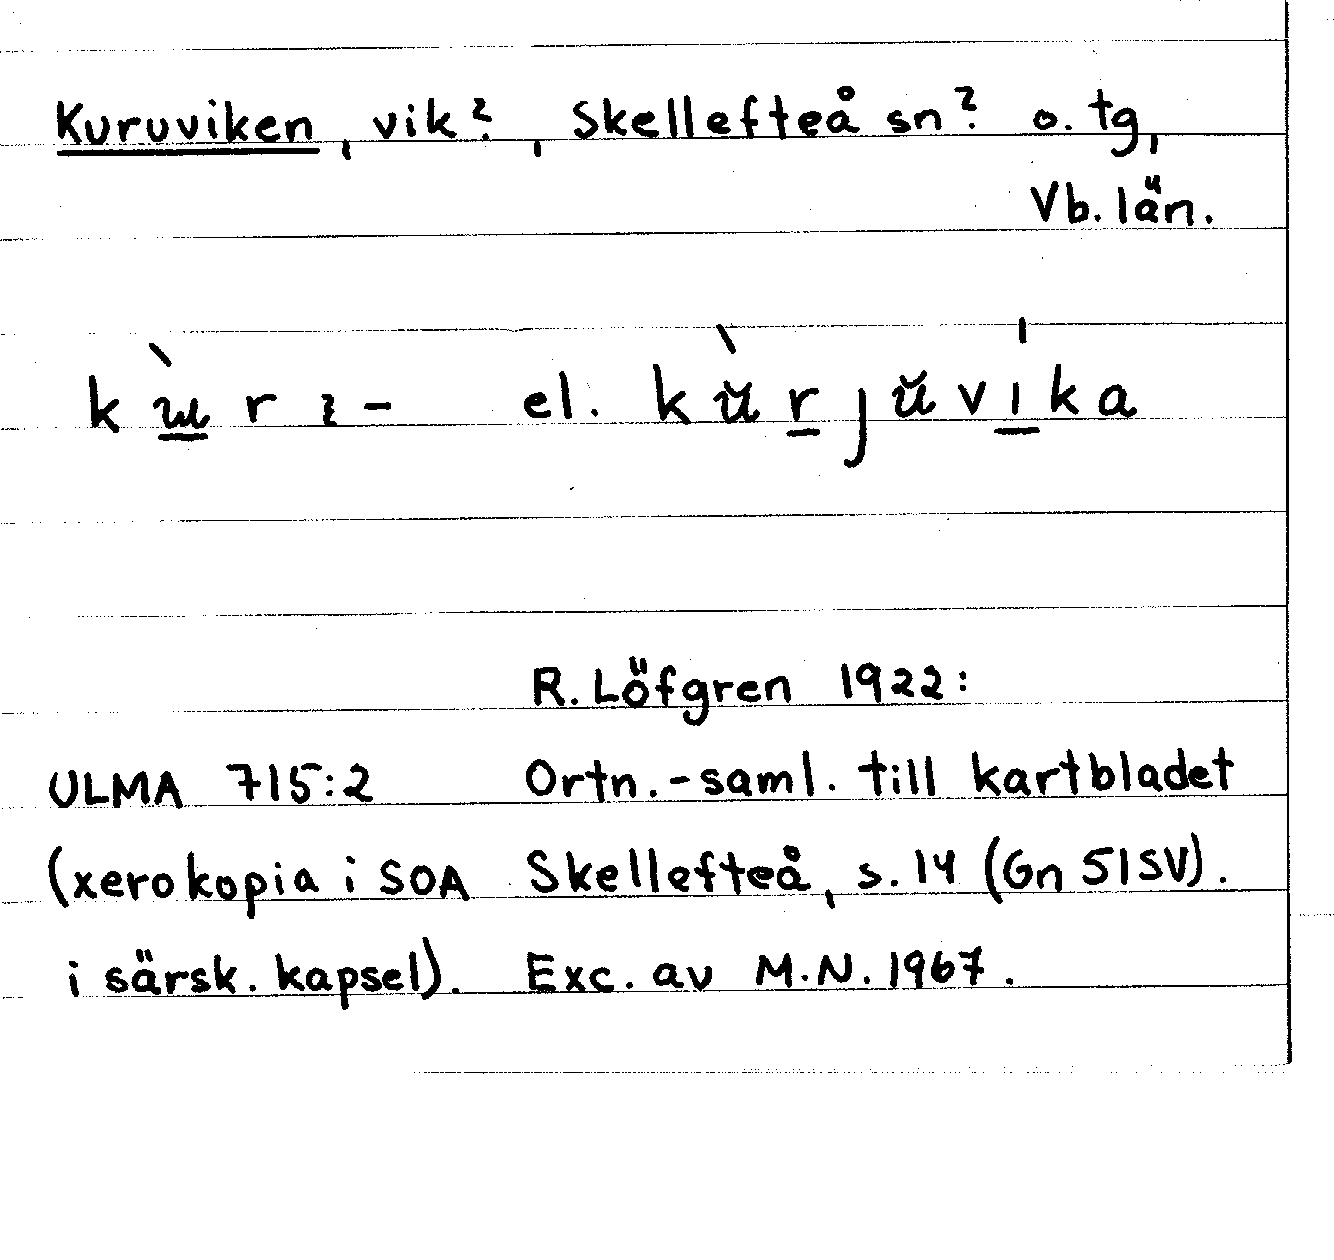 Kuruviken, vik?, Skellefteå sn? o. tg,
Vb. län.
el.
R. Löfgren 1922:
ULMA 715:2 Ortn.-saml. till kartbladet
(xerokopia i SOA Skellefteå, s. 14 (Gn 51SV).
i särsk. kapsel). Exc. av M.N. 1967.